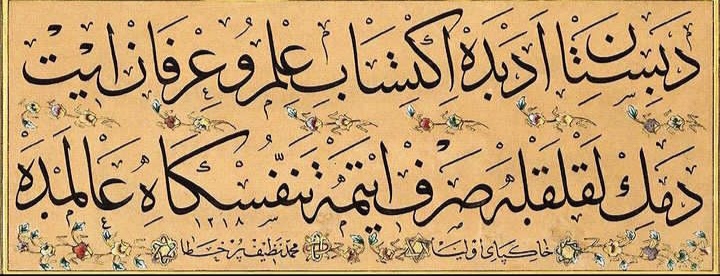 دبستان ادبده اكتساب علم و عرفان ايت
دمك لقلقله صرف ايتمه تنفسكاه عالمده
خاكپاى اوليا محمد نظيف پر خطا